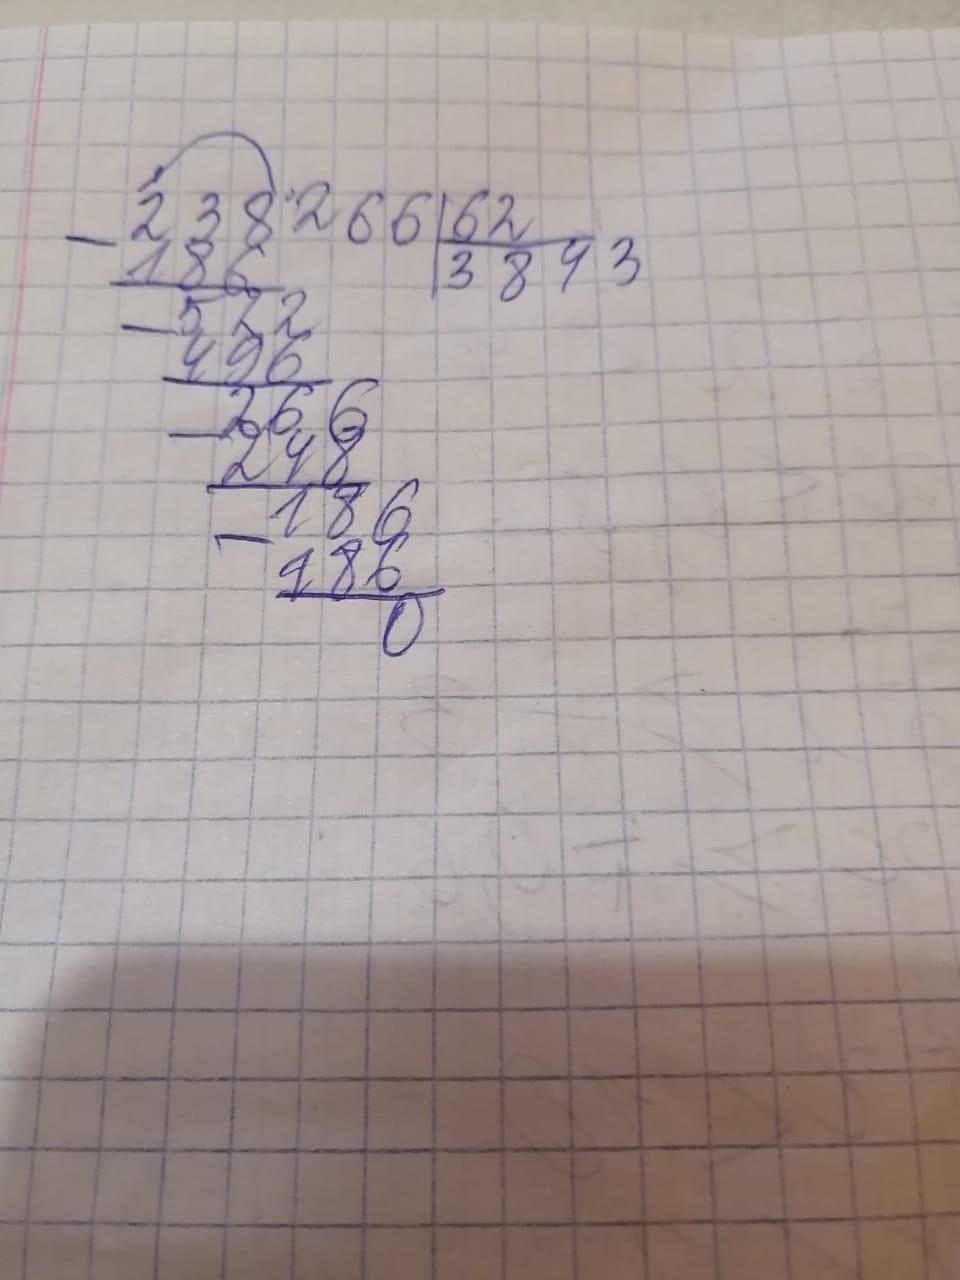 238266|62
-186 3843
-522
496
-266
248
-186
186
0